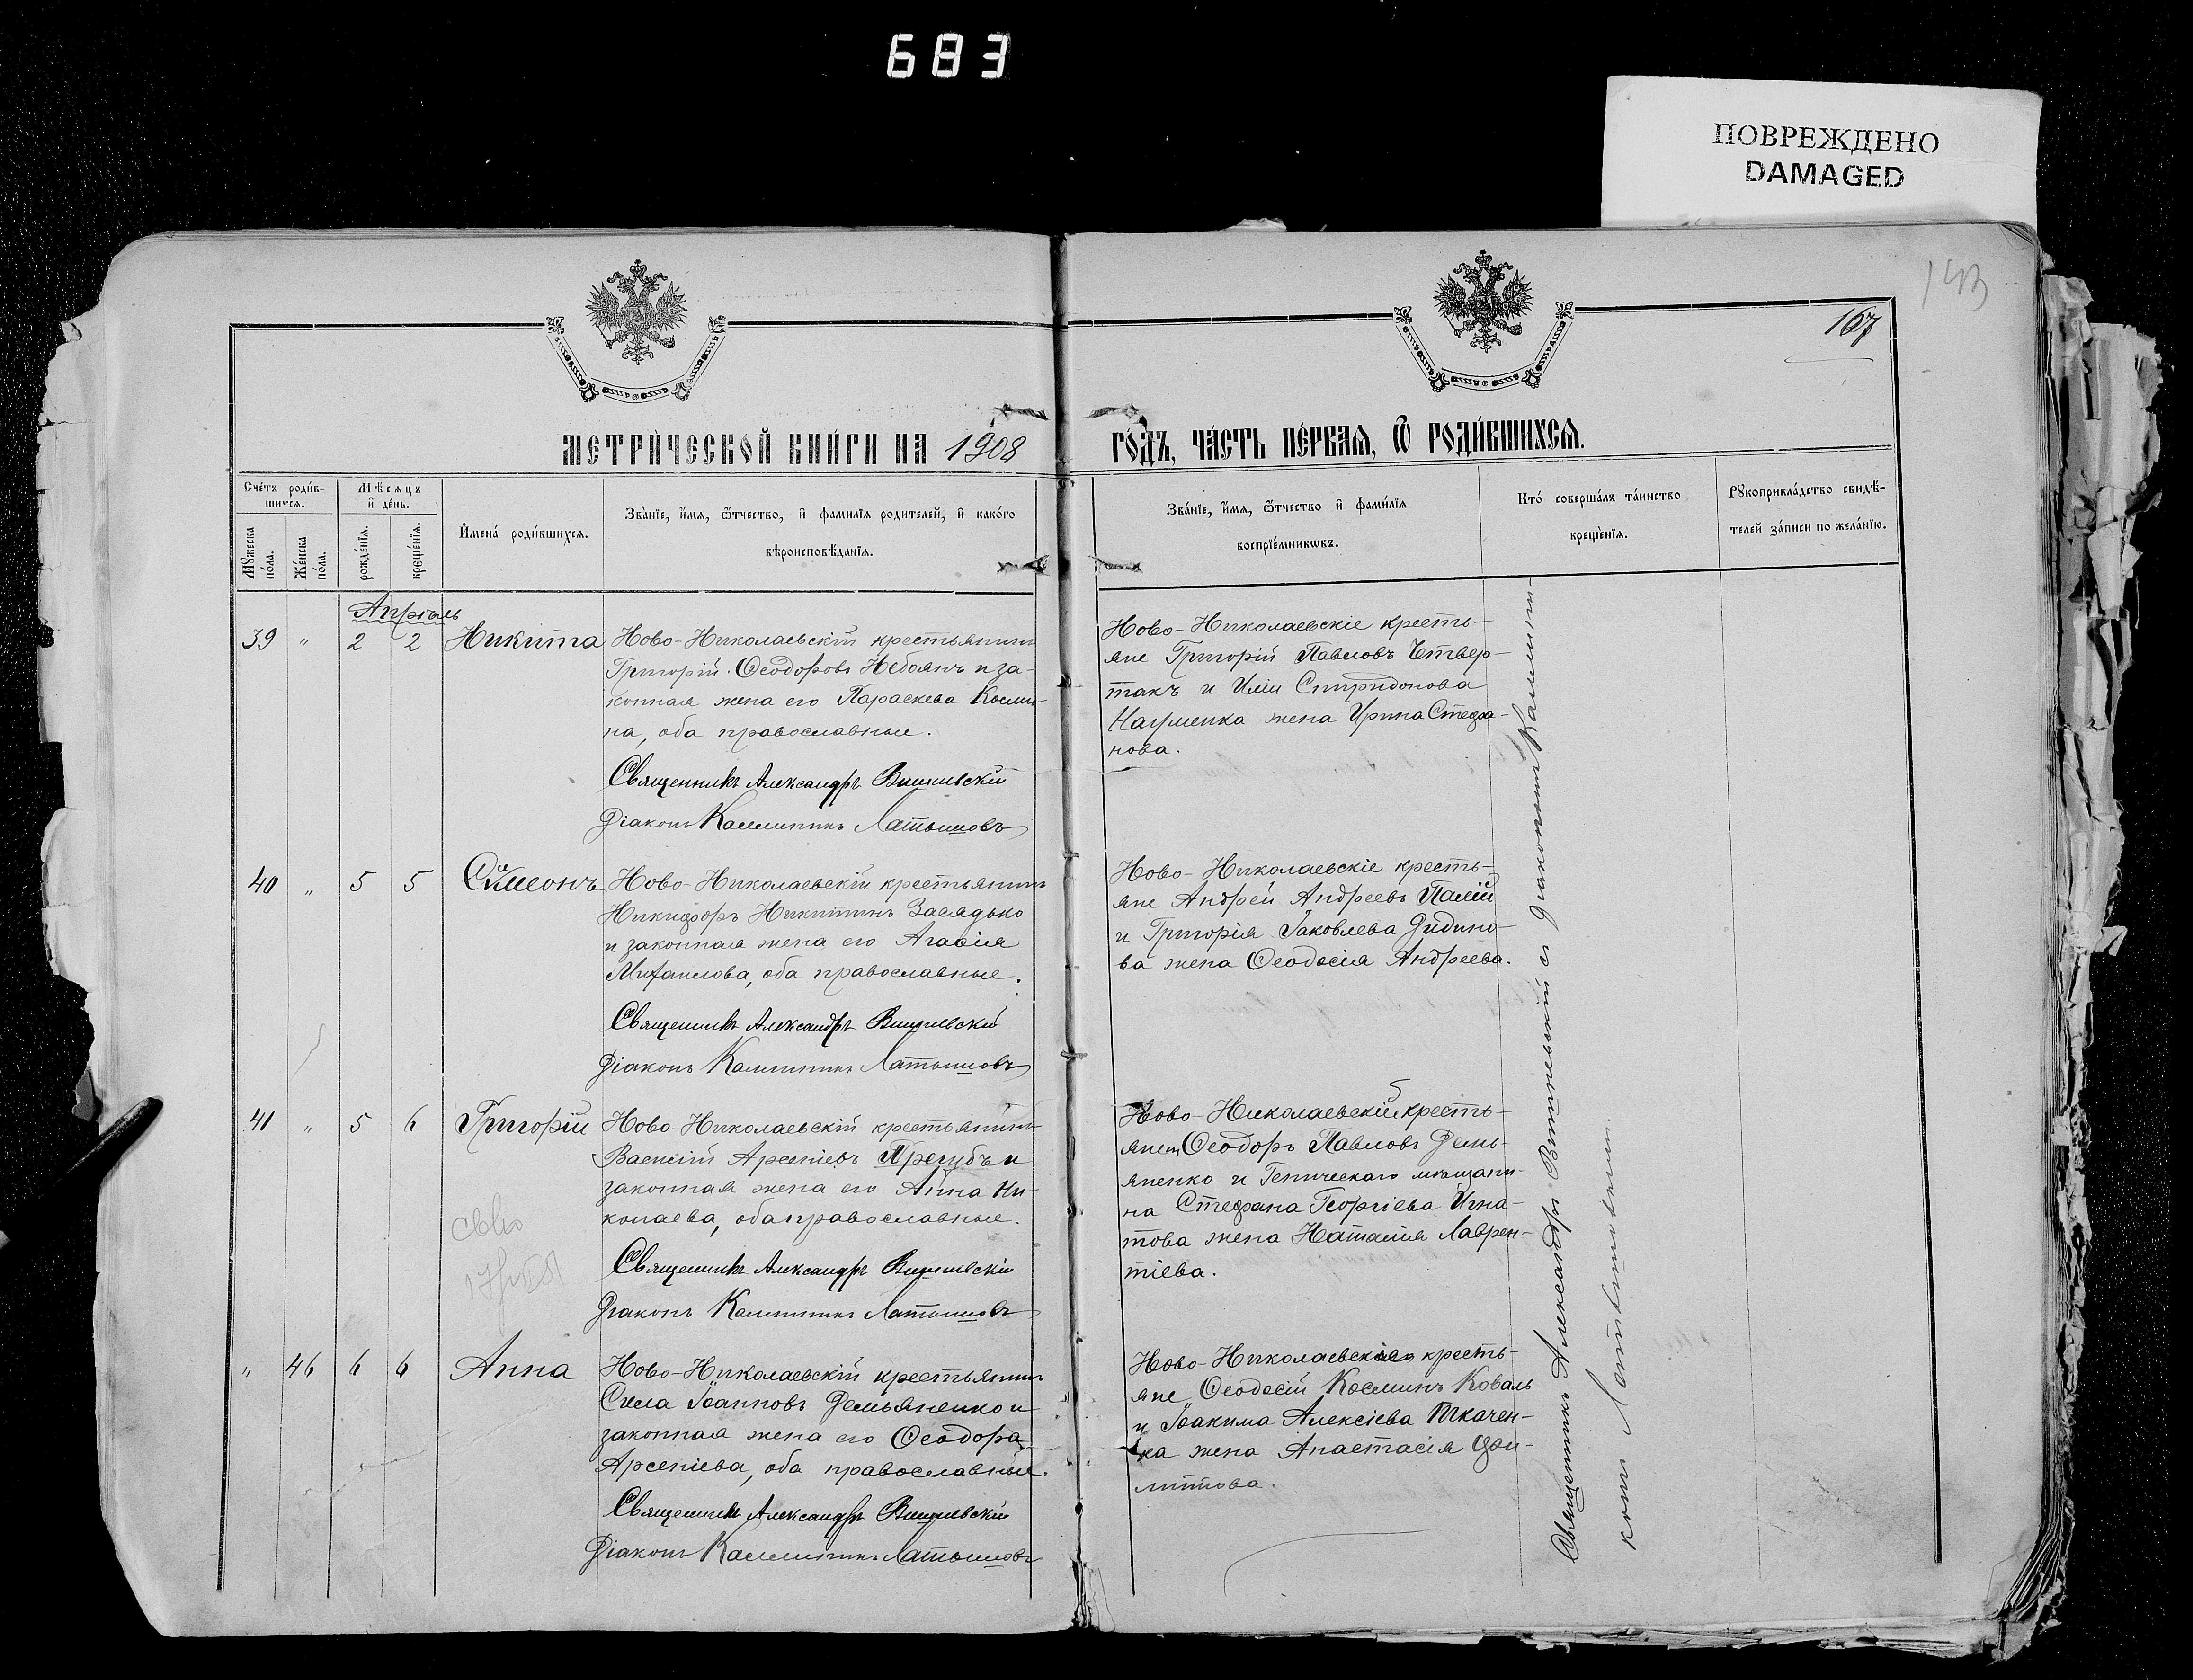 683
ПОВРЕЖДЕНО
DAMAGED
143
167
МЕТРИ́ЧЕСКОЙ КНИ́ГИ НА 1908 ГО́ДЪ, ЧА́СТЬ ПЕ́РВАЯ, Ѿ РОДИ́ВШИХСЯ.
Сче́тъ роди́в-
шихся.
Му́жеска по́ла.
Же́нска по́ла.
Мѣсяцъ
и де́нь.
рожде́нія.
креще́нія.
Имена́ роди́вшихся.
Зва́ніе, и́мя, ѻ҆́тчество, и фами́лія родителей, и како́го
вѣроисповѣ́данія.
Зва́ніе, и́мя, ѻ҆́тчество и фами́лія
воспріе́мниковъ.
Кто́ соверша́лъ та́инство
креще́нія.
Рукоприкла́дство свидѣ́-
телей за́писи по жела́нію.
Апрѣль
39 " 2 2 Никита
Ново-Николаевскій крестьянинъ
Григорій Ѳеодоровъ Небоянъ и за-
конная жена его Параскева Косми-
на, оба православные.
Священникъ Александръ Вишневскій
Діаконъ Каллиникъ Латышовъ
Ново-Николаевскіе кресть-
яне Григорій Павловъ Четвер-
такъ и Иліи Спиридонова
Науменка жена Ирина Стефа-
нова.
40 " 5 5 Сѵмеонъ
Ново-Николаевскій крестьянинъ
Никифоръ Никитинъ Засядько
и законная жена его Агафія
Михаилова, оба православные.
Священникъ Александръ Вишневскій
Діаконъ Каллиникъ Латышовъ
Ново-Николаевскіе кресть-
яне Андрей Андреевъ Палій
и Григорія Іаковлева Дидино-
ва жена Ѳеодосія Андреева.
41 " 5 6 Григорій
Ново-Николаевскій крестьянинъ
Василій Арсеніевъ Прегубъ и
законная жена его Анна Ни-
колаева, оба православные.
Священникъ Александръ Вишневскій
Діаконъ Каллиникъ Латышовъ
Ново-Николаевскій кресть-
янец Ѳеодоръ Павловъ Демь-
яненко и Геническаго мѣщани-
на Стефана Георгіева Игна-
това жена Наталія Лаврен-
тіева.
" 46 6 6 Анна
Ново-Николаевскій крестьянинъ
Сила Іоанновъ Демьяненко и
законная жена его Ѳеодора
Арсеніева, оба православные.
Священникъ Александръ Вишневскій
Діаконъ Каллиникъ Латышовъ
Ново-Николаевскіе кресть-
яне Ѳеодосій Косминъ Коваль
и Іоакима Алексіева Ткачен-
ка жена Анастасія Фи-
липпова.
Священникъ Александръ Вишневскій съ діакономъ Каллини-
комъ Латышовымъ.